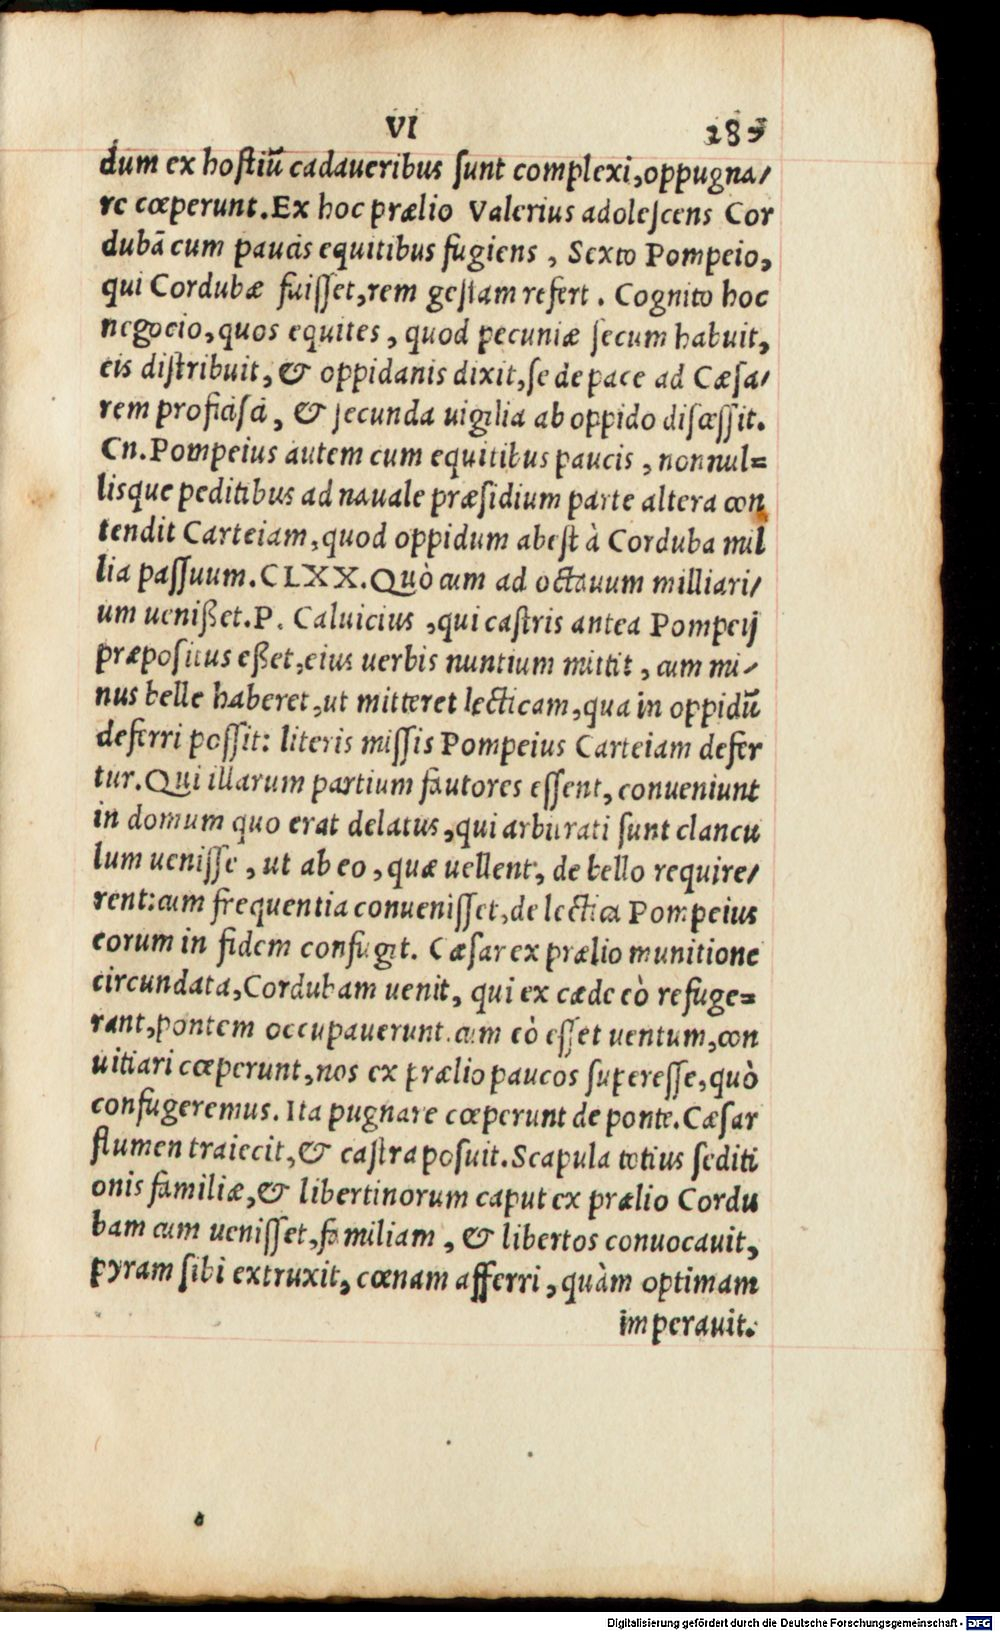 VI 185
dum ex hostiũ cadaueribus sunt complexi,oppugna/
re cœperunt.Ex hoc prælio Valerius adolescens Cor
dubã cum paucis equitibus fugiens , Sexto Pompeio,
qui Cordubæ fuisset,rem gestam refert . Cognito hoc
negocio,quos equites , quod pecuniæ secum habuit,
eis distribuit, & oppidanis dixit,se de pace ad Cæsa/
rem proficisci, & secunda uigilia ab oppido discessit.
Cn.Pompeius autem cum equitibus paucis , nonnul=
lisque peditibus ad nauale præsidium parte altera con
tendit Carteiam,quod oppidum abest à Corduba mil
lia passuum.CLXX.Quò cum ad octauum milliari/
um uenißet.P. Caluicius ,qui castris antea Pompeij
præpositus eßet,eius uerbis nuntium mittit , cum mi/
nus belle haberet,ut mitteret lecticam,qua in oppidũ
deferri possit: literis missis Pompeius Carteiam defer
tur.Qui illarum partium fautores essent, conueniunt
in domum quo erat delatus,qui arbitrati sunt clancu
lum uenisse , ut ab eo , quæ uellent, de bello require/
rent:cum frequentia conuenisset,de lectica Pompeius
eorum in fidem confugit. Cæsar ex prælio munitione
circundata,Cordubam uenit, qui ex cæde eò refuge=
rant,pontem occupauerunt.cum eò esset uentum,con
uitiari cœperunt,nos ex prælio paucos superesse,quò
confugeremus. Ita pugnare cœperunt de ponte.Cæsar
flumen traiecit,& castra posuit.Scapula totius sediti
onis familiæ,& libertinorum caput ex prælio Cordu
bam cum uenisset,familiam , & libertos conuocauit,
pyram sibi extruxit, cœnam afferri , quàm optimam
imperauit.
Digitalisierung gefördert durch die Deutsche Forschungsgemeinschaft - DFG